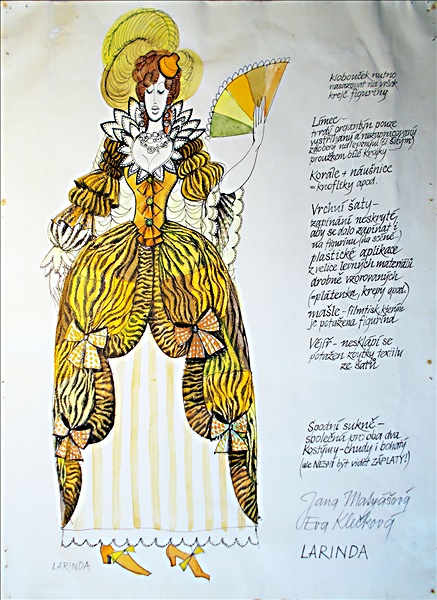 klobouček nutno
navazovat na vršek
kreje figuríny
Límec –
tvrdý organtýn pouze
vystříhaný a nezapracovaný
zdobený nalepením (či šitým)
proužkem bílé krajky
Korále + náušnice
= knoflíky apod.
Vrchní šaty –
zapínání neskryté,
aby se dalo zapínat i
na figurínu (na scéně)
plastické aplikace
z velice levných materiálů
drobně vzorovaných
(= plátenka, krepy apod.)
mašle – filmtisk kterým
je potažena figurína
Vějíř – nesklápí se
potažen zbytky textilu
ze šatů
Spodní sukně –
společná pro oba dva
kostýmy – chudý i bohatý
(ale NESMÍ být vidět ZÁPLATY!)
Jana Matyášová
Eva Klečková
LARINDA
LARINDA